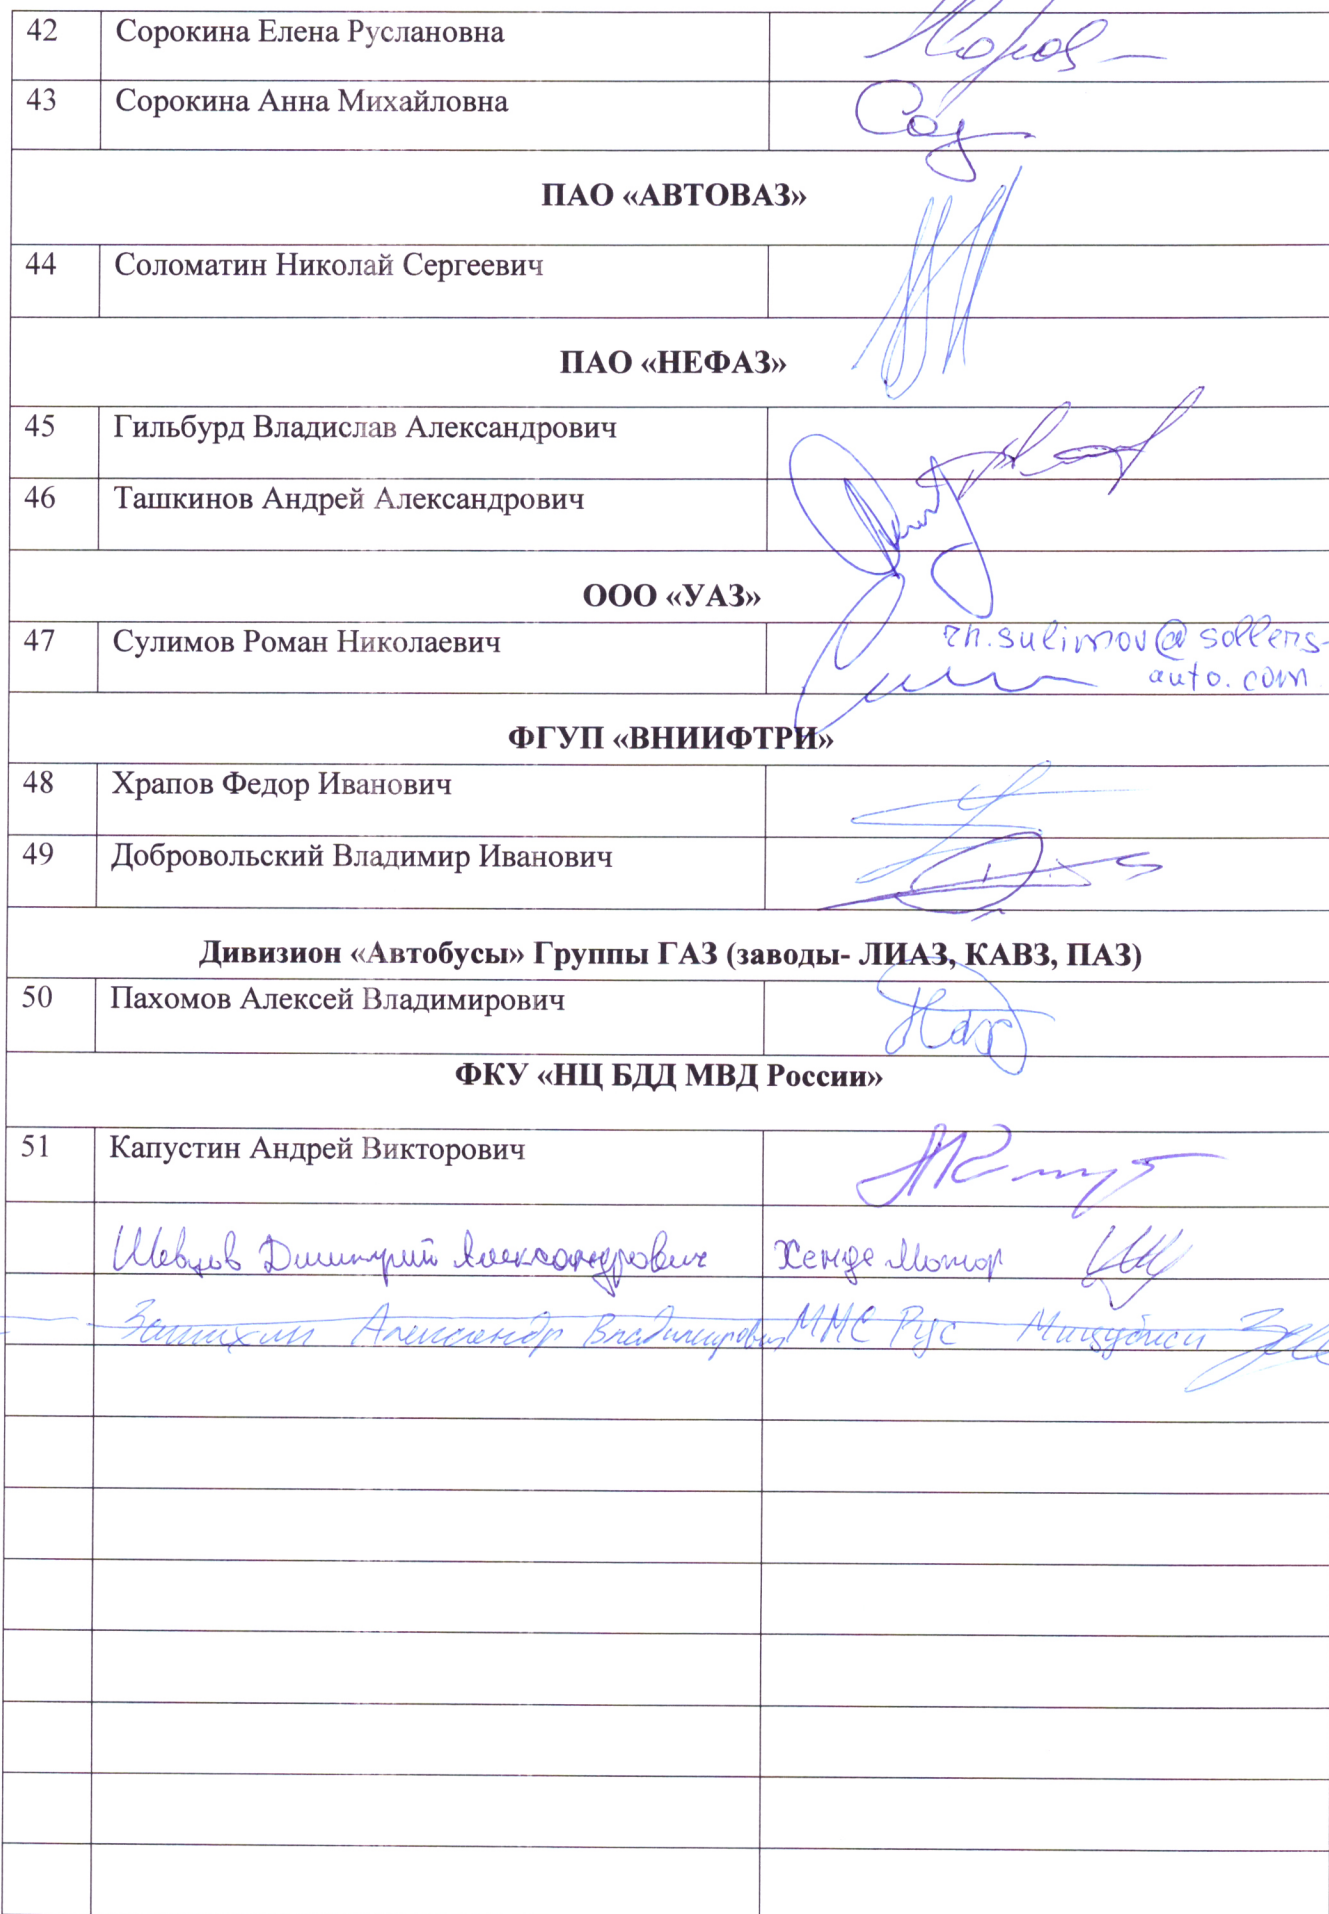 42 Сорокина Елена Руслановна
43 Сорокина Анна Михайловна
ПАО «АВТОВАЗ»
44 Соломатин Николай Сергеевич
ПАО «НЕФАЗ»
45 Гильбурд Владислав Александрович
46 Ташкинов Андрей Александрович
ООО «УАЗ»
47 Сулимов Роман Николаевич rn.sulimov@sollers-
auto.com
ФГУП «ВНИИФТРИ»
48 Храпов Федор Иванович
49 Добровольский Владимир Иванович
Дивизион «Автобусы» Группы ГАЗ (заводы- ЛИАЗ, КАВЗ, ПАЗ)
50 Пахомов Алексей Владимирович
ФКУ «НЦ БДД МВД России»
51 Капустин Андрей Викторович
Шевцов Дмитрий Александрович Хенде Мотор
Александр Владимирович ММС Рус Мицубиси